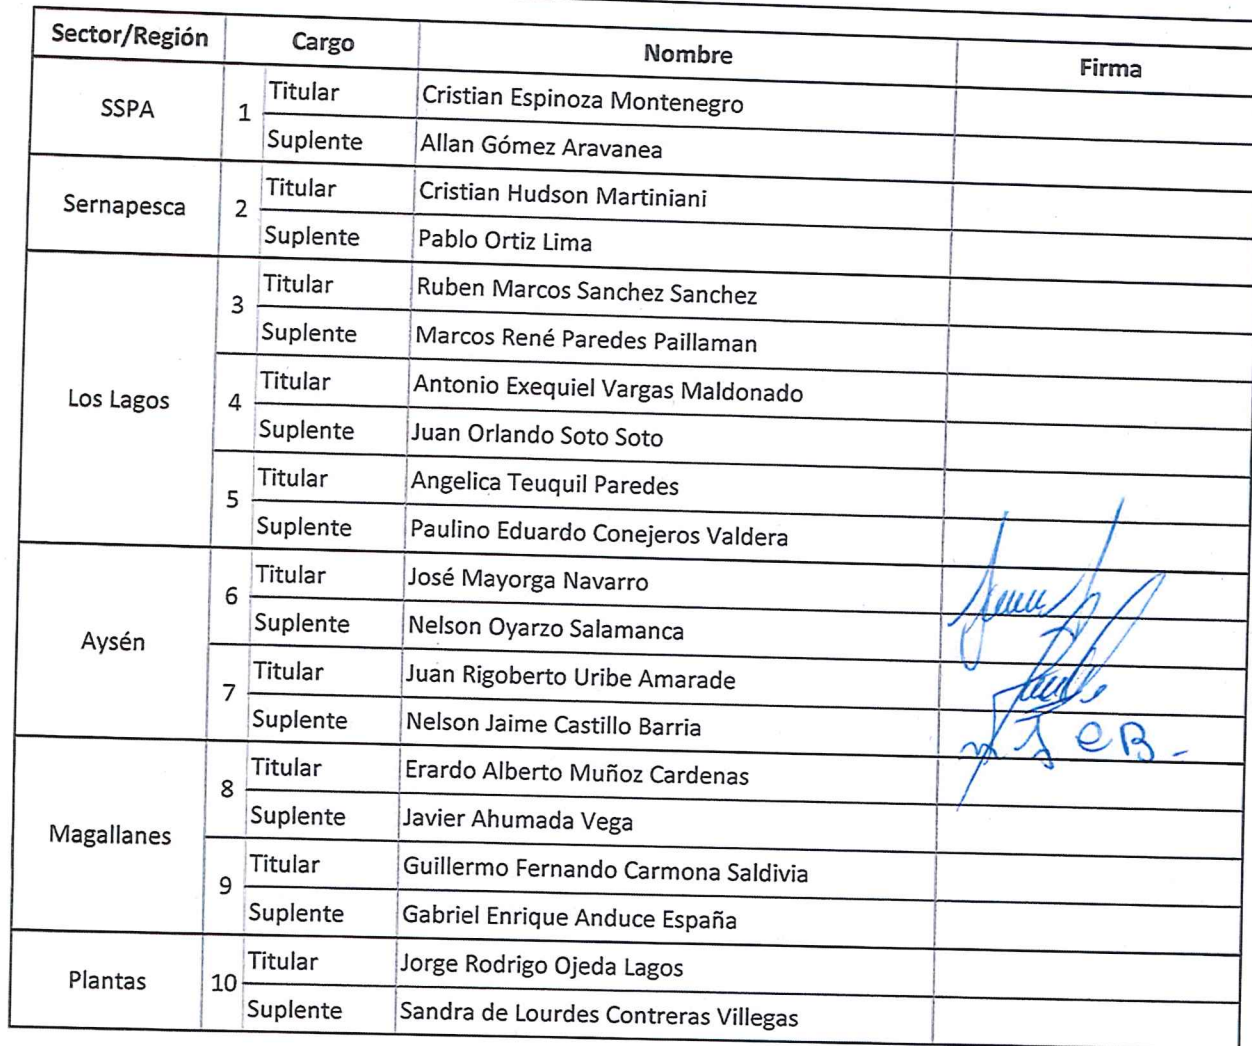 Sector/Región Cargo Nombre Firma
SSPA 1 Titular Cristian Espinoza Montenegro
Suplente Allan Gómez Aravanea
Sernapesca 2 Titular Cristian Hudson Martiniani
Suplente Pablo Ortiz Lima
Los Lagos 3 Titular Ruben Marcos Sanchez Sanchez
Suplente Marcos René Paredes Paillaman
4 Titular Antonio Exequiel Vargas Maldonado
Suplente Juan Orlando Soto Soto
5 Titular Angelica Teuquil Paredes
Suplente Paulino Eduardo Conejeros Valdera
Aysén 6 Titular José Mayorga Navarro
Suplente Nelson Oyarzo Salamanca
7 Titular Juan Rigoberto Uribe Amarade
Suplente Nelson Jaime Castillo Barria N J C B -
Magallanes 8 Titular Erardo Alberto Muñoz Cardenas
Suplente Javier Ahumada Vega
9 Titular Guillermo Fernando Carmona Saldivia
Suplente Gabriel Enrique Anduce España
Plantas 10 Titular Jorge Rodrigo Ojeda Lagos
Suplente Sandra de Lourdes Contreras Villegas